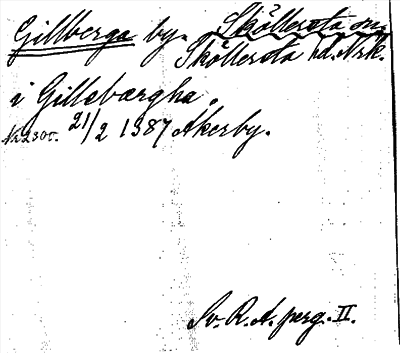 Gillberga by. Sköllersta sn.
Sköllersta hd. Nrk.
i Gillebærgha.
Nr 2300. 21/2 1387 Åkerby.
Sv. R. A. perg. II.